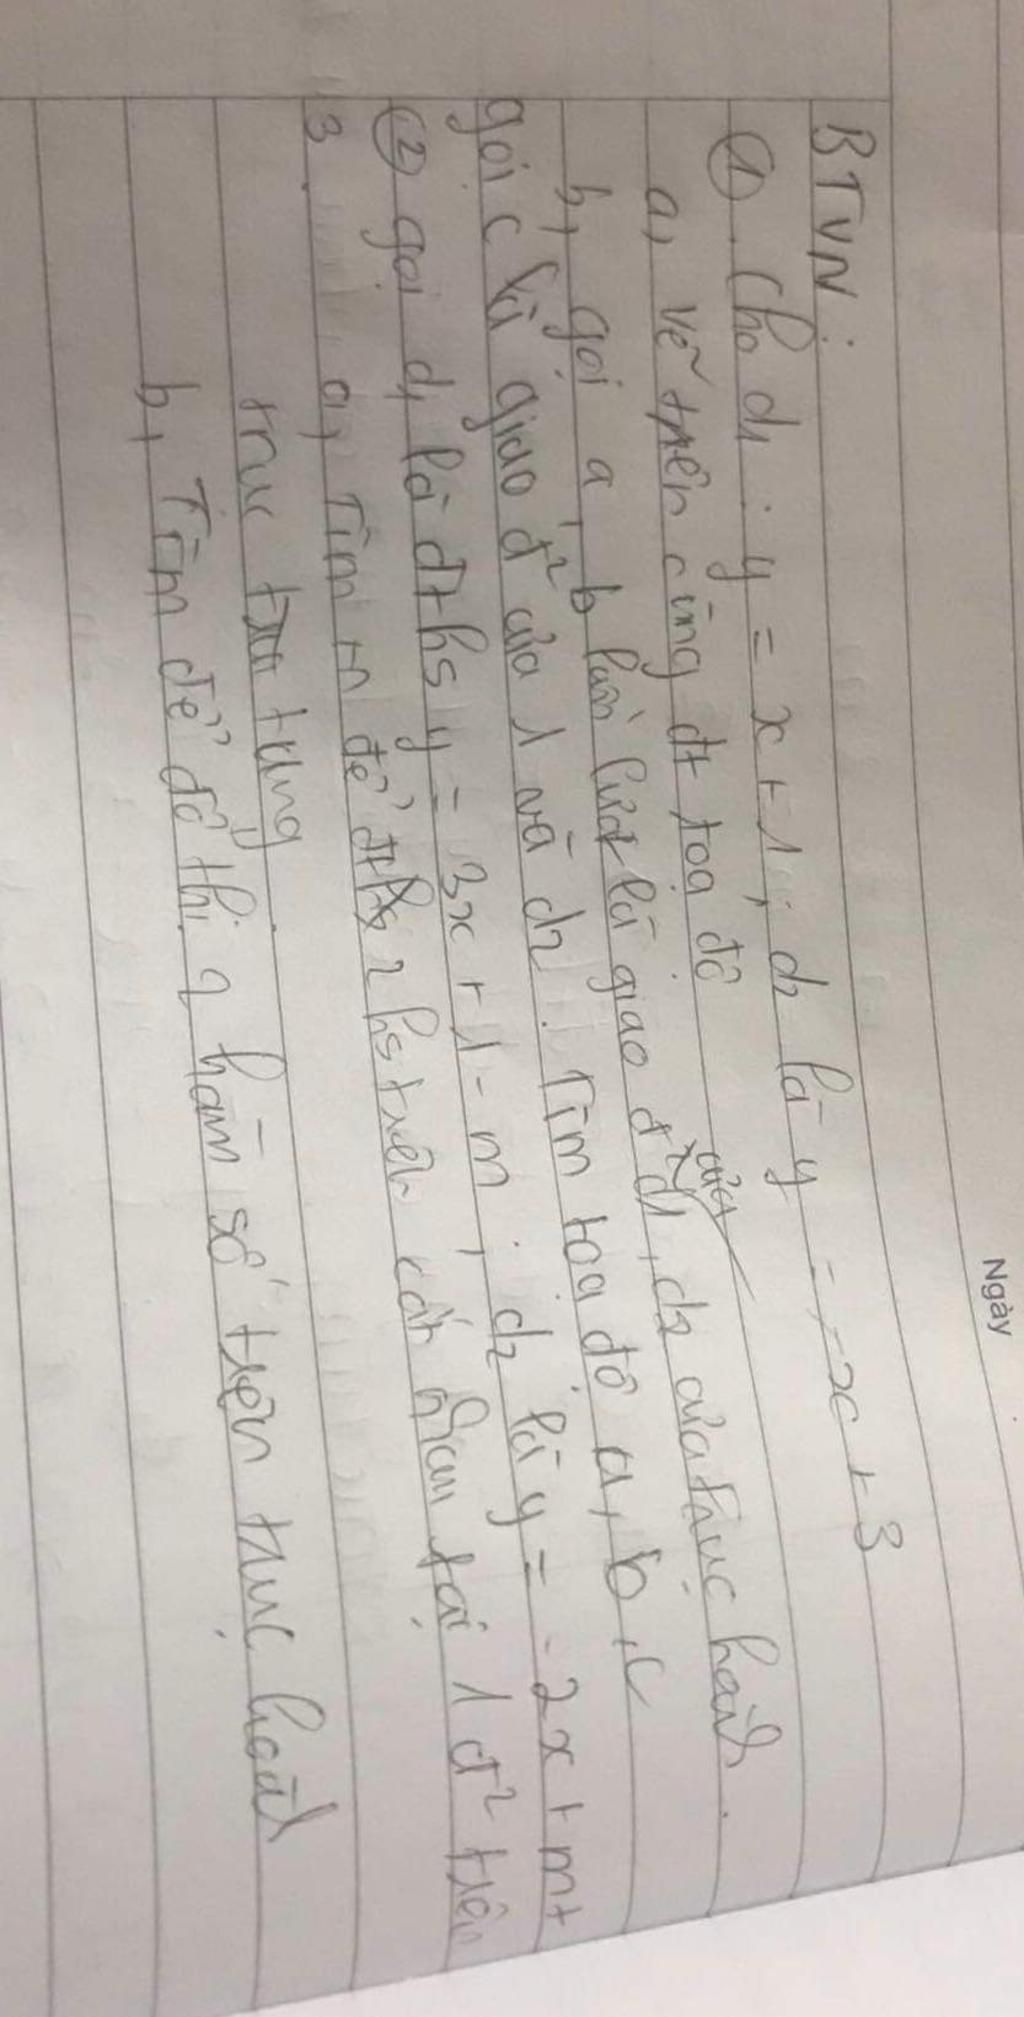 Ngày
BTVN:
① . Cho d1 : y = x + 1 ; d2 là y = -x + 3
a, vẽ trên cùng đt toạ độ
b, gọi a, b lần lượt là giao đ² của d1, d2 của trục hoành.
gọi c là giao đ² của 1 và d2. Tìm toạ độ a, b, c
② gọi d1 là đths y = 3x + 1 - m ; d2 là y = -2x + m +
3 a, Tìm m để đt 2 hs trên cắt nhau tại 1 đ² trên
trục tung
b, Tìm để đồ thị 2 hàm số trên trục hoành